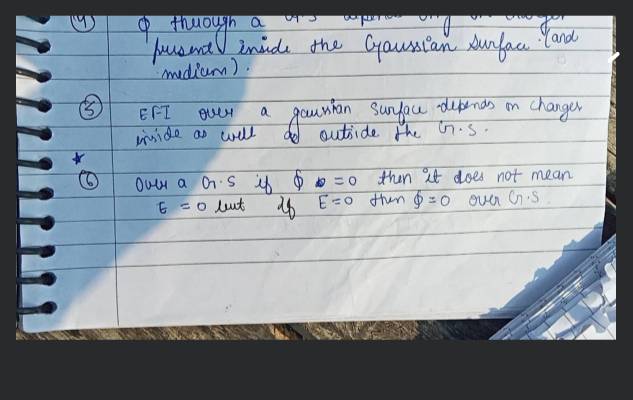 (4) ϕ through a G.S depends only on charges
present inside the Gaussian surface. (and
medium).
(5) EFI over a gaussian surface depends on charges
inside as well as outside the G.S.
(6) Over a G.S if ϕ = 0 then it does not mean
E = 0 but if E = 0 then ϕ = 0 over G.S.